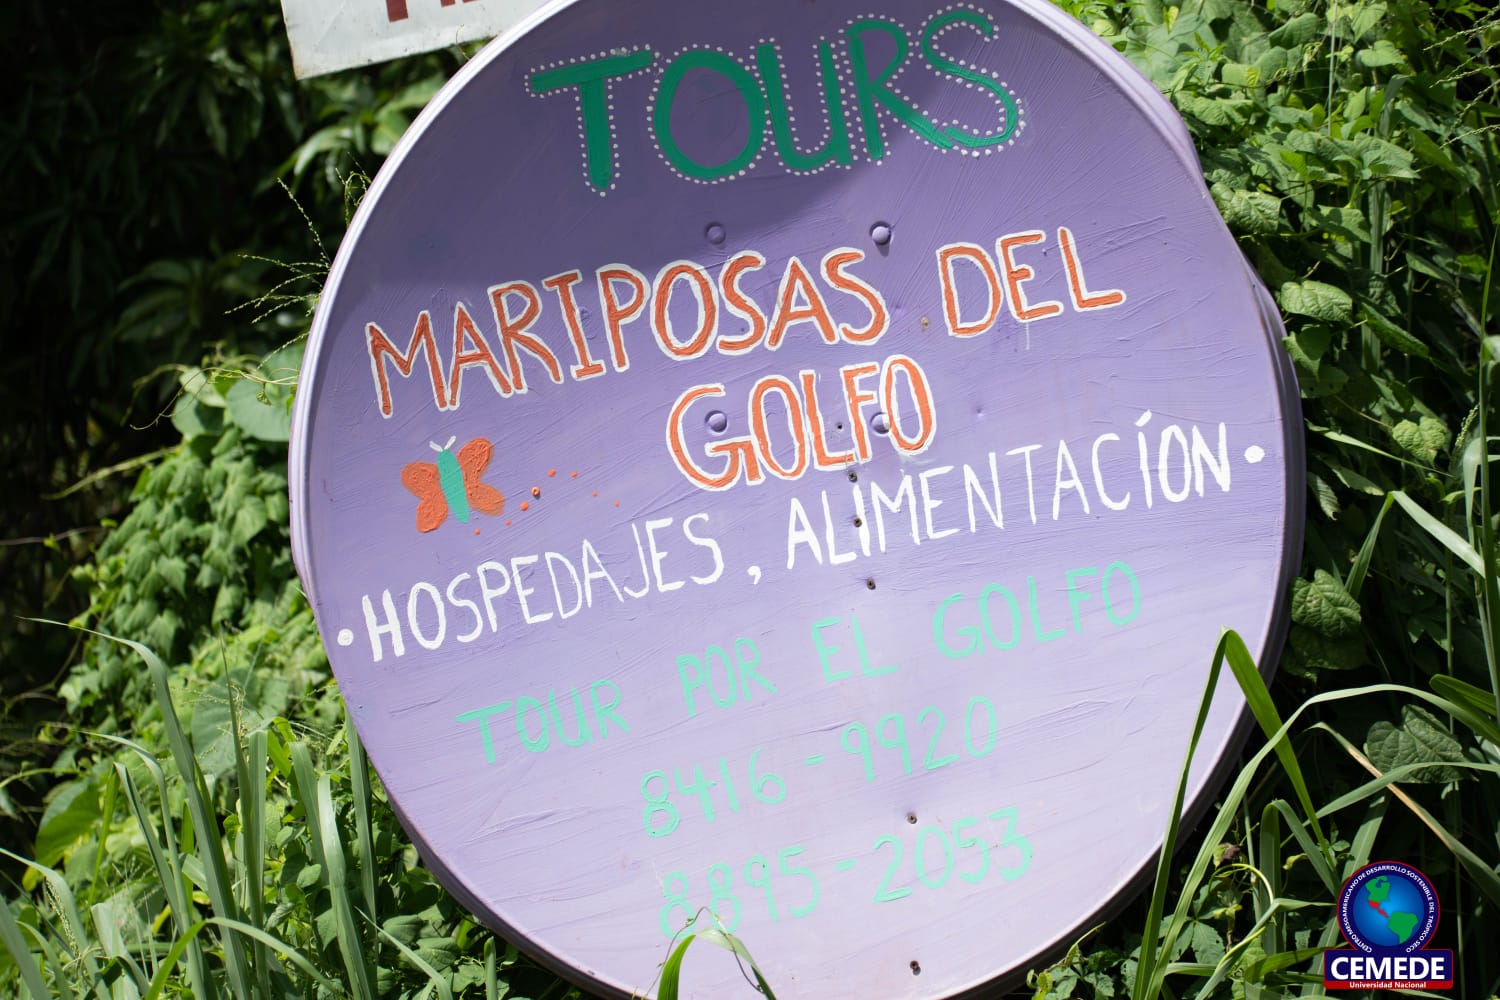 TOURS
MARIPOSAS DEL
GOLFO
• HOSPEDAJES, ALIMENTACÍON •
TOUR POR EL GOLFO
8416-9920
8895-2053
CENTRO MESOAMERICANO DE DESARROLLO SOSTENIBLE DEL TRÓPICO SECO
CEMEDE
Universidad Nacional